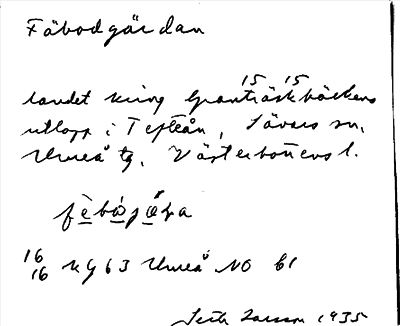 Fäbodgärdan
15 15
landet kring Granträskbäckens
utlopp i Tefteån, Sävars sn,
Umeå tg, Västerbottens l.
fèbo̱jo̱ḷa
16
16 KG 63 Umeå NO b1
Seth Larsson 1935